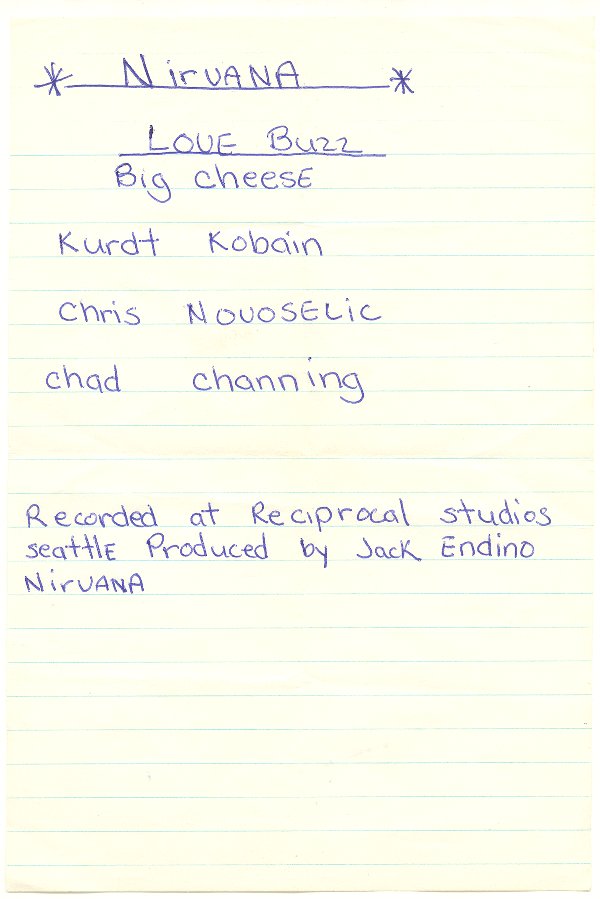 * NirVANA *
LOVE BUZZ
Big cheesE
Kurdt Kobain
Chris NOVOSELiC
chad channing
Recorded at Reciprocal studios
seattlE Produced by Jack Endino
NirVANA